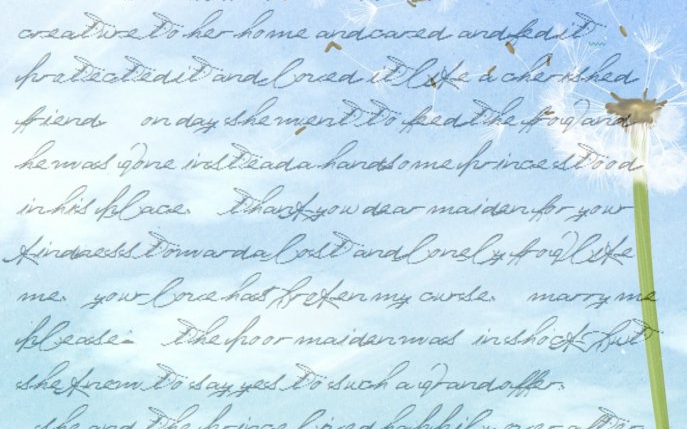 creature to her home and cared and fed it
protected it and loved it like a cherished
friend on day she went to feed the frog and
he was gone instead a handsome prince stood
in his place. thank you dear maiden for your
kindness toward a lost and lonely frog like
me. your love has broken my curse. marry me
please. the poor maiden was in shock but
she knew to say yes to such a grand offer.
she and the prince lived happily ever after